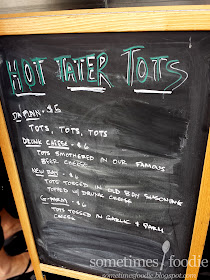 HOT TATER TOTS
TOTS, TOTS, TOTS
DRUNK CHEESE - $6
TOTS SMOTHERED IN OUR FAMOUS
BEER CHEESE
NEW BAY - $6
TOTS TOSSED IN OLD BAY SEASONING
TOPPED W/ DRUNK CHEESE
G-PARM - $6
TOTS TOSSED IN GARLIC & PARM
CHEESE
sometimes foodie
sometimesfoodie.blogspot.com